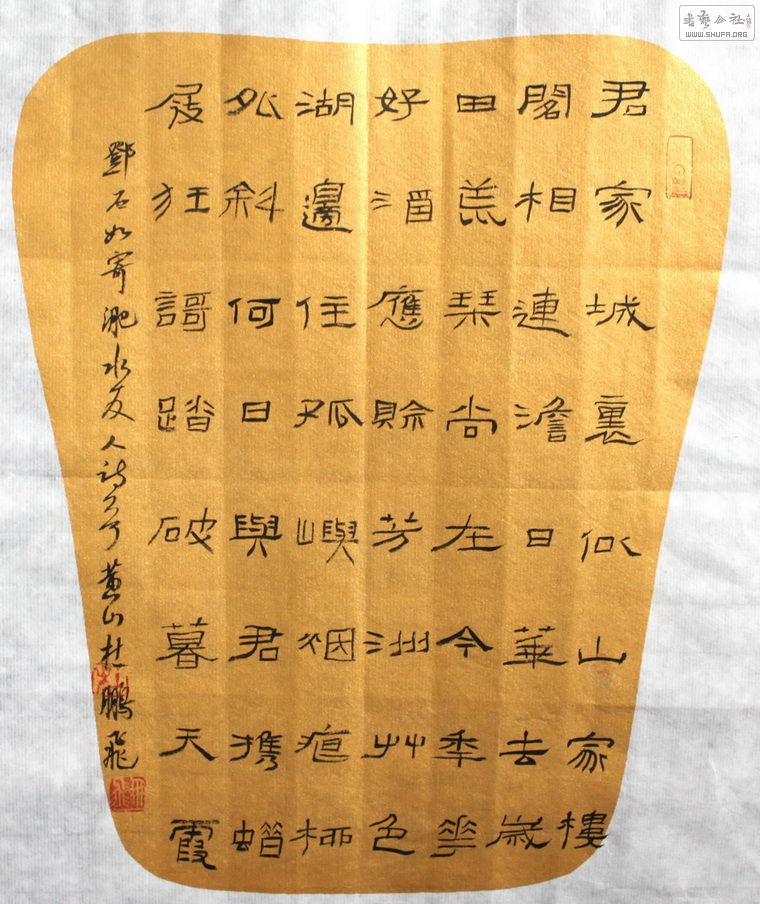 君家城裏似山家樓
閣相連澹日華去歲
田荒琴尚在今年花
好酒應賒芳洲艸色
湖邊住孤嶼烟痕柳
外斜何日與君攜蜡
屐狂謌踏破暮天霞
鄧石如寄淝水友人詩 黃山杜鵬飛
WWW.SHUFA.ORG